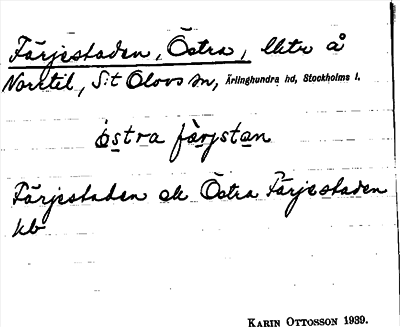 Färjestaden, Östra, lktr å
Norrtil, S:t Olovs sn, Ärlinghundra hd, Stockholms l.
östra färjstan
Färjestaden ell Östra Färjestaden
kb
KARIN OTTOSSON 1939.